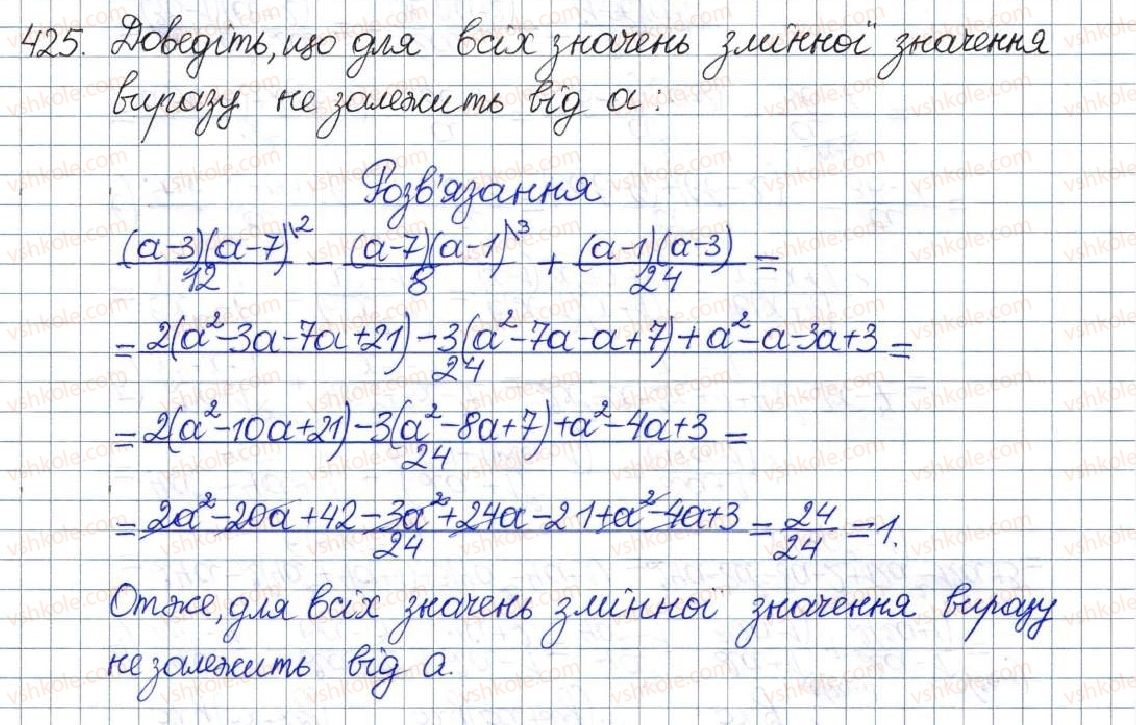 425. Доведіть, що для всіх значень змінної значення
виразу не залежить від a:
Розв'язання
(a-3)(a-7)\2/12 - (a-7)(a-1)\3/8 + (a-1)(a-3)/24 =
= 2(a²-3a-7a+21)-3(a²-7a-a+7)+a²-a-3a+3/24 =
= 2(a²-10a+21)-3(a²-8a+7)+a²-4a+3/24 =
= 2a²-20a+42-3a²+24a-21+a²-4a+3/24 = 24/24 = 1.
Отже, для всіх значень змінної значення виразу
не залежить від a.